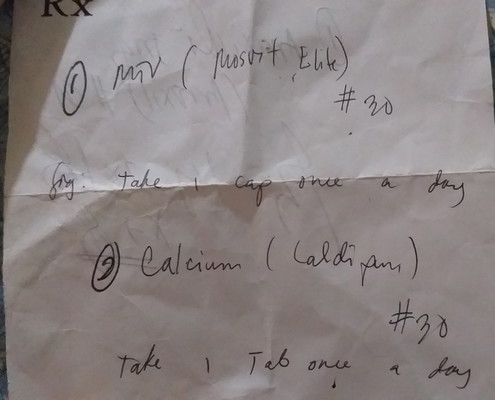 Rx
① MV ( Mosvit Elite)
#30
Sig: take 1 cap once a day
② Calcium ( Caldi
#30
take 1 Tab once a day